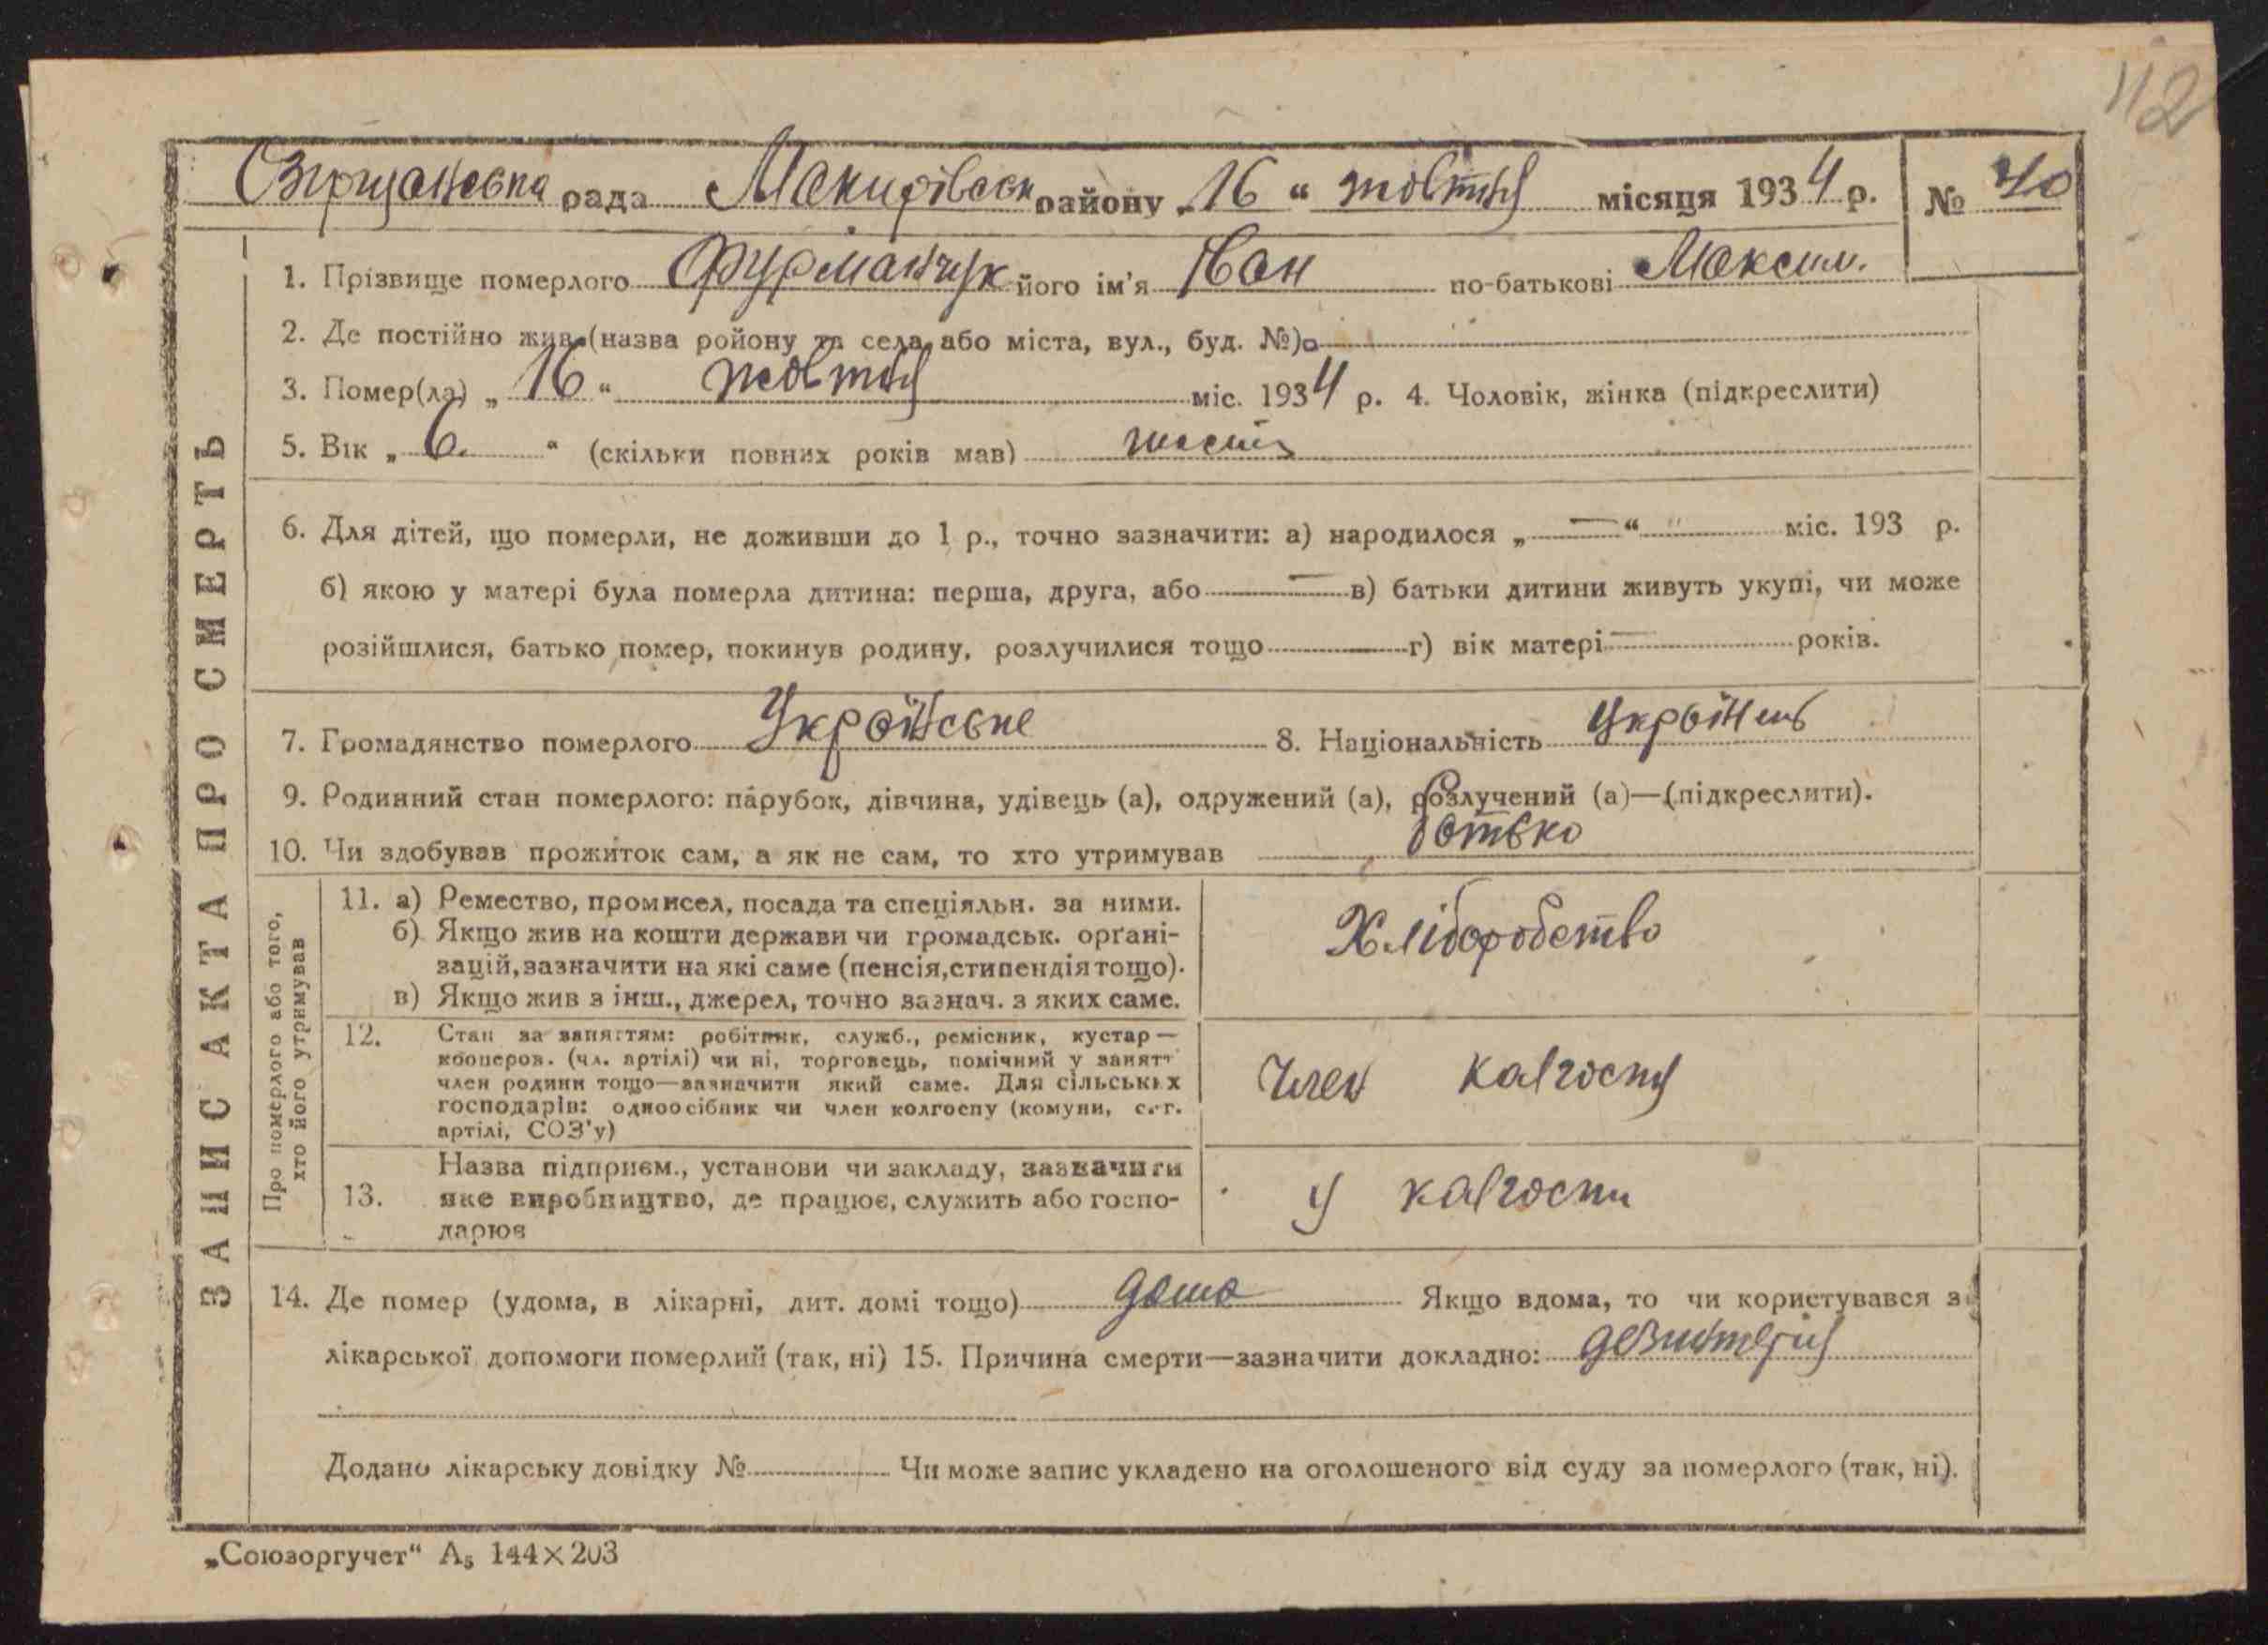 112
Озирщанська рада Макарівськ району „16“ жовтня місяця 1934 р. № 40
1. Прізвище померлого Фурманчук його ім'я Іван по-батькові Максим.
2. Де постійно жив (назва ройону та села або міста, вул., буд. №)
3. Помер(ла) „16“ жовтня міс. 1934 р. 4. Чоловік, жінка (підкреслити)
5. Вік „6.“ (скільки повних років мав) шість
6. Для дітей, що померли, не доживши до 1 р., точно зазначити: а) народилося „—“ " міс. 193 р.
б) якою у матері була померла дитина: перша, друга, або — в) батьки дитини живуть укупі, чи може
розійшлися, батько помер, покинув родину, розлучилися тощо г) вік матері — років.
7. Громадянство померлого Українське 8. Національність Українець
9. Родинний стан померлого: парубок, дівчина, удівець (а), одружений (а), розлучений (а)—(підкреслити).
10. Чи здобував прожиток сам, а як не сам, то хто утримував батько
ЗАПИС АКТА ПРО СМЕРТЬ
Про померлого або того,
хто його утримував
11. а) Ремество, промисел, посада та спеціяльн. за ними.
б) Якщо жив на кошти держави чи громадськ. орґані-
зацій, зазначити на які саме (пенсія, стипендія тощо).
в) Якщо жив з інш., джерел, точно зазнач. з яких саме.
Хліборобство
12. Стан за заняттям: робітник, служб., ремісник, кустар—
кооперов. (чл. артілі) чи ні, торговець, помічний у занятт
член родини тощо—зазначити який саме. Для сільських
господарів: одноосібник чи член колгоспу (комуни, с.-г.
артілі, СОЗ'у)
Член калгоспу
13. Назва підприєм., установи чи закладу, зазначити
яке виробництво, де працює, служить або госпо-
дарює
у калгоспи
14. Де помер (удома, в лікарні, дит. домі тощо) дома Якщо вдома, то чи користувався з
лікарської допомоги померлий (так, ні) 15. Причина смерти—зазначити докладно: дезинтерія
Додано лікарську довідку № Чи може запис укладено на оголошеного від суду за померлого (так, ні).
„Союзоргучет“ А₅ 144×203